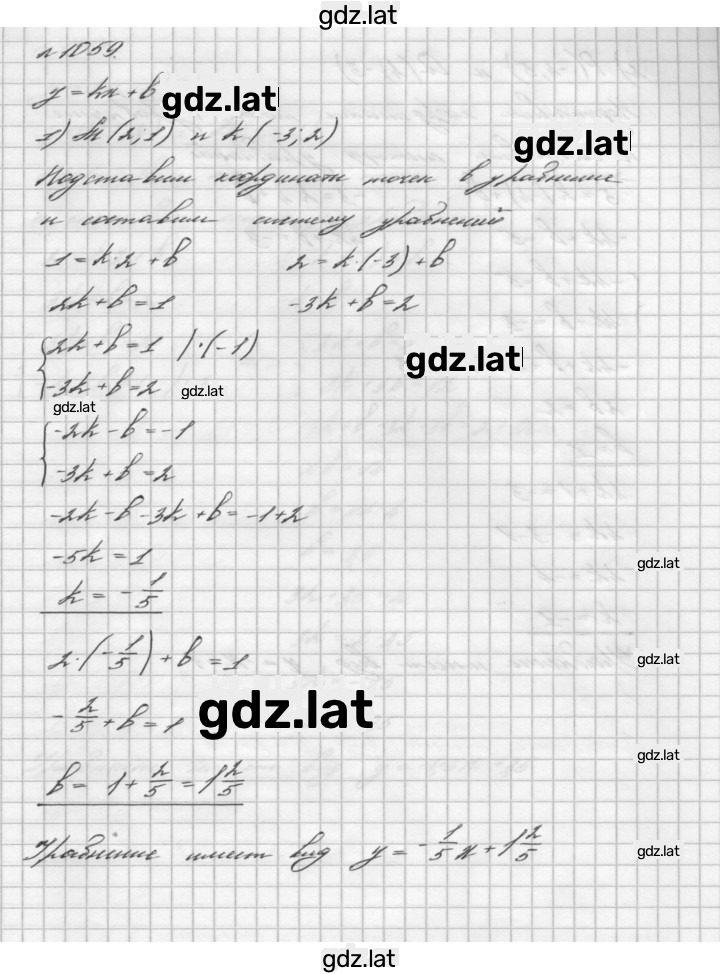 gdz.lat
№1059.
y = kx + b
gdz.lat
1) M(2; 1) и K(-3; 2)
gdz.lat
Подставим координаты точек в уравнение
и составим систему уравнений
1 = k·2 + b 2 = k·(-3) + b
2k + b = 1 -3k + b = 2
{2k + b = 1 |·(-1)
gdz.lat
-3k + b = 2
gdz.lat
gdz.lat
{-2k - b = -1
-3k + b = 2
-2k - b - 3k + b = -1 + 2
-5k = 1
gdz.lat
k = -1/5
2·(-1/5) + b = 1
gdz.lat
-2/5 + b = 1
gdz.lat
b = 1 + 2/5 = 1 2/5
gdz.lat
Уравнение имеет вид y = -1/5x + 1 2/5
gdz.lat
gdz.lat